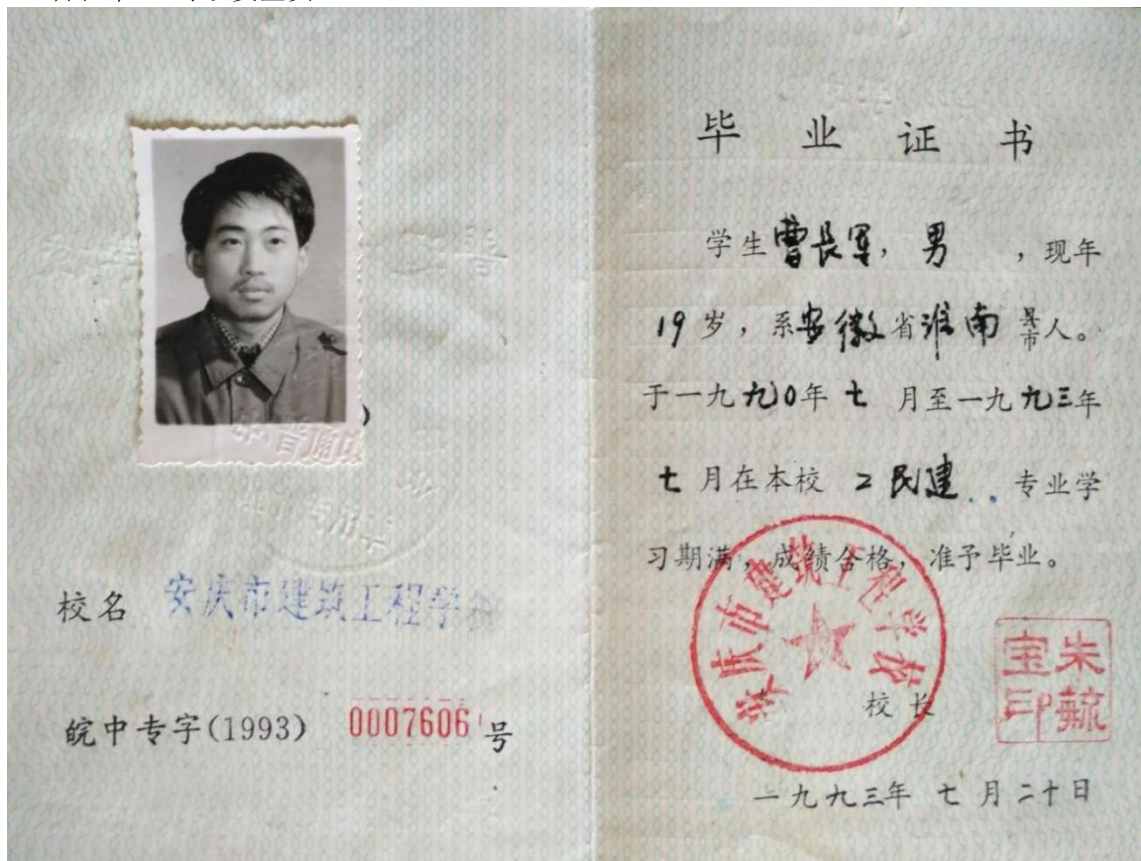 校名 安庆市建筑工程学
皖中专字(1993) 0007606 号
毕业证书
学生曹长军,男 ,现年
19岁,系安徽省淮南县市人。
于一九九0年七月至一九九三年
七月在本校 工民建 专业学
习期满,成绩合格,准予毕业。
安庆市建筑工程学校
校长
朱毓宝印
一九九三年七月二十日